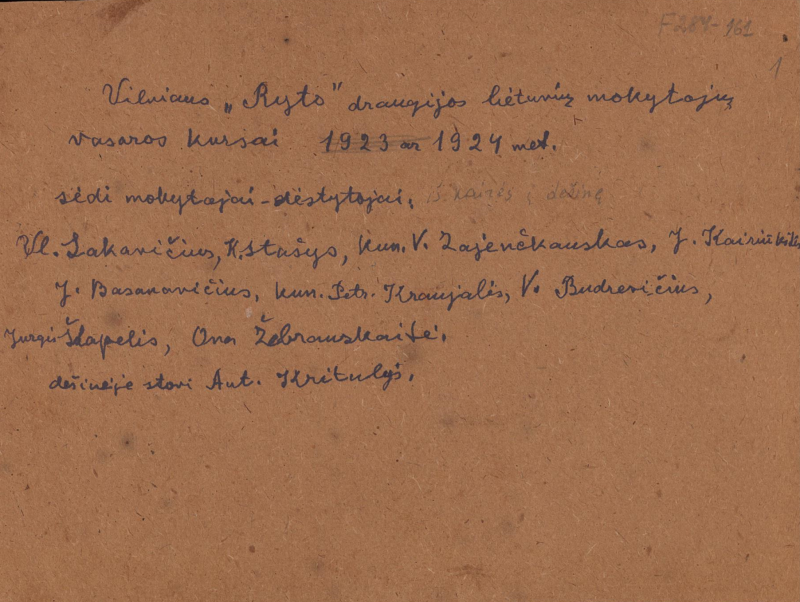 F 284-161
1
Vilniaus „Ryto" draugijos lietuvių mokytojų
vasaros kursai 1923 ar 1924 met.
sėdi mokytojai-dėstytojai, iš kairės į dešinę
Vl. Zakavičius, K. Stašys, kun. V. Zajenčkauskas, J. Kairiūkštis
J. Basanavičius, kun. Petr. Kraujalis, V. Budrevičius,
Jurgis Šlapelis, Ona Žebrauskaitė.
dešinėje stovi Aut. Kritulyš.